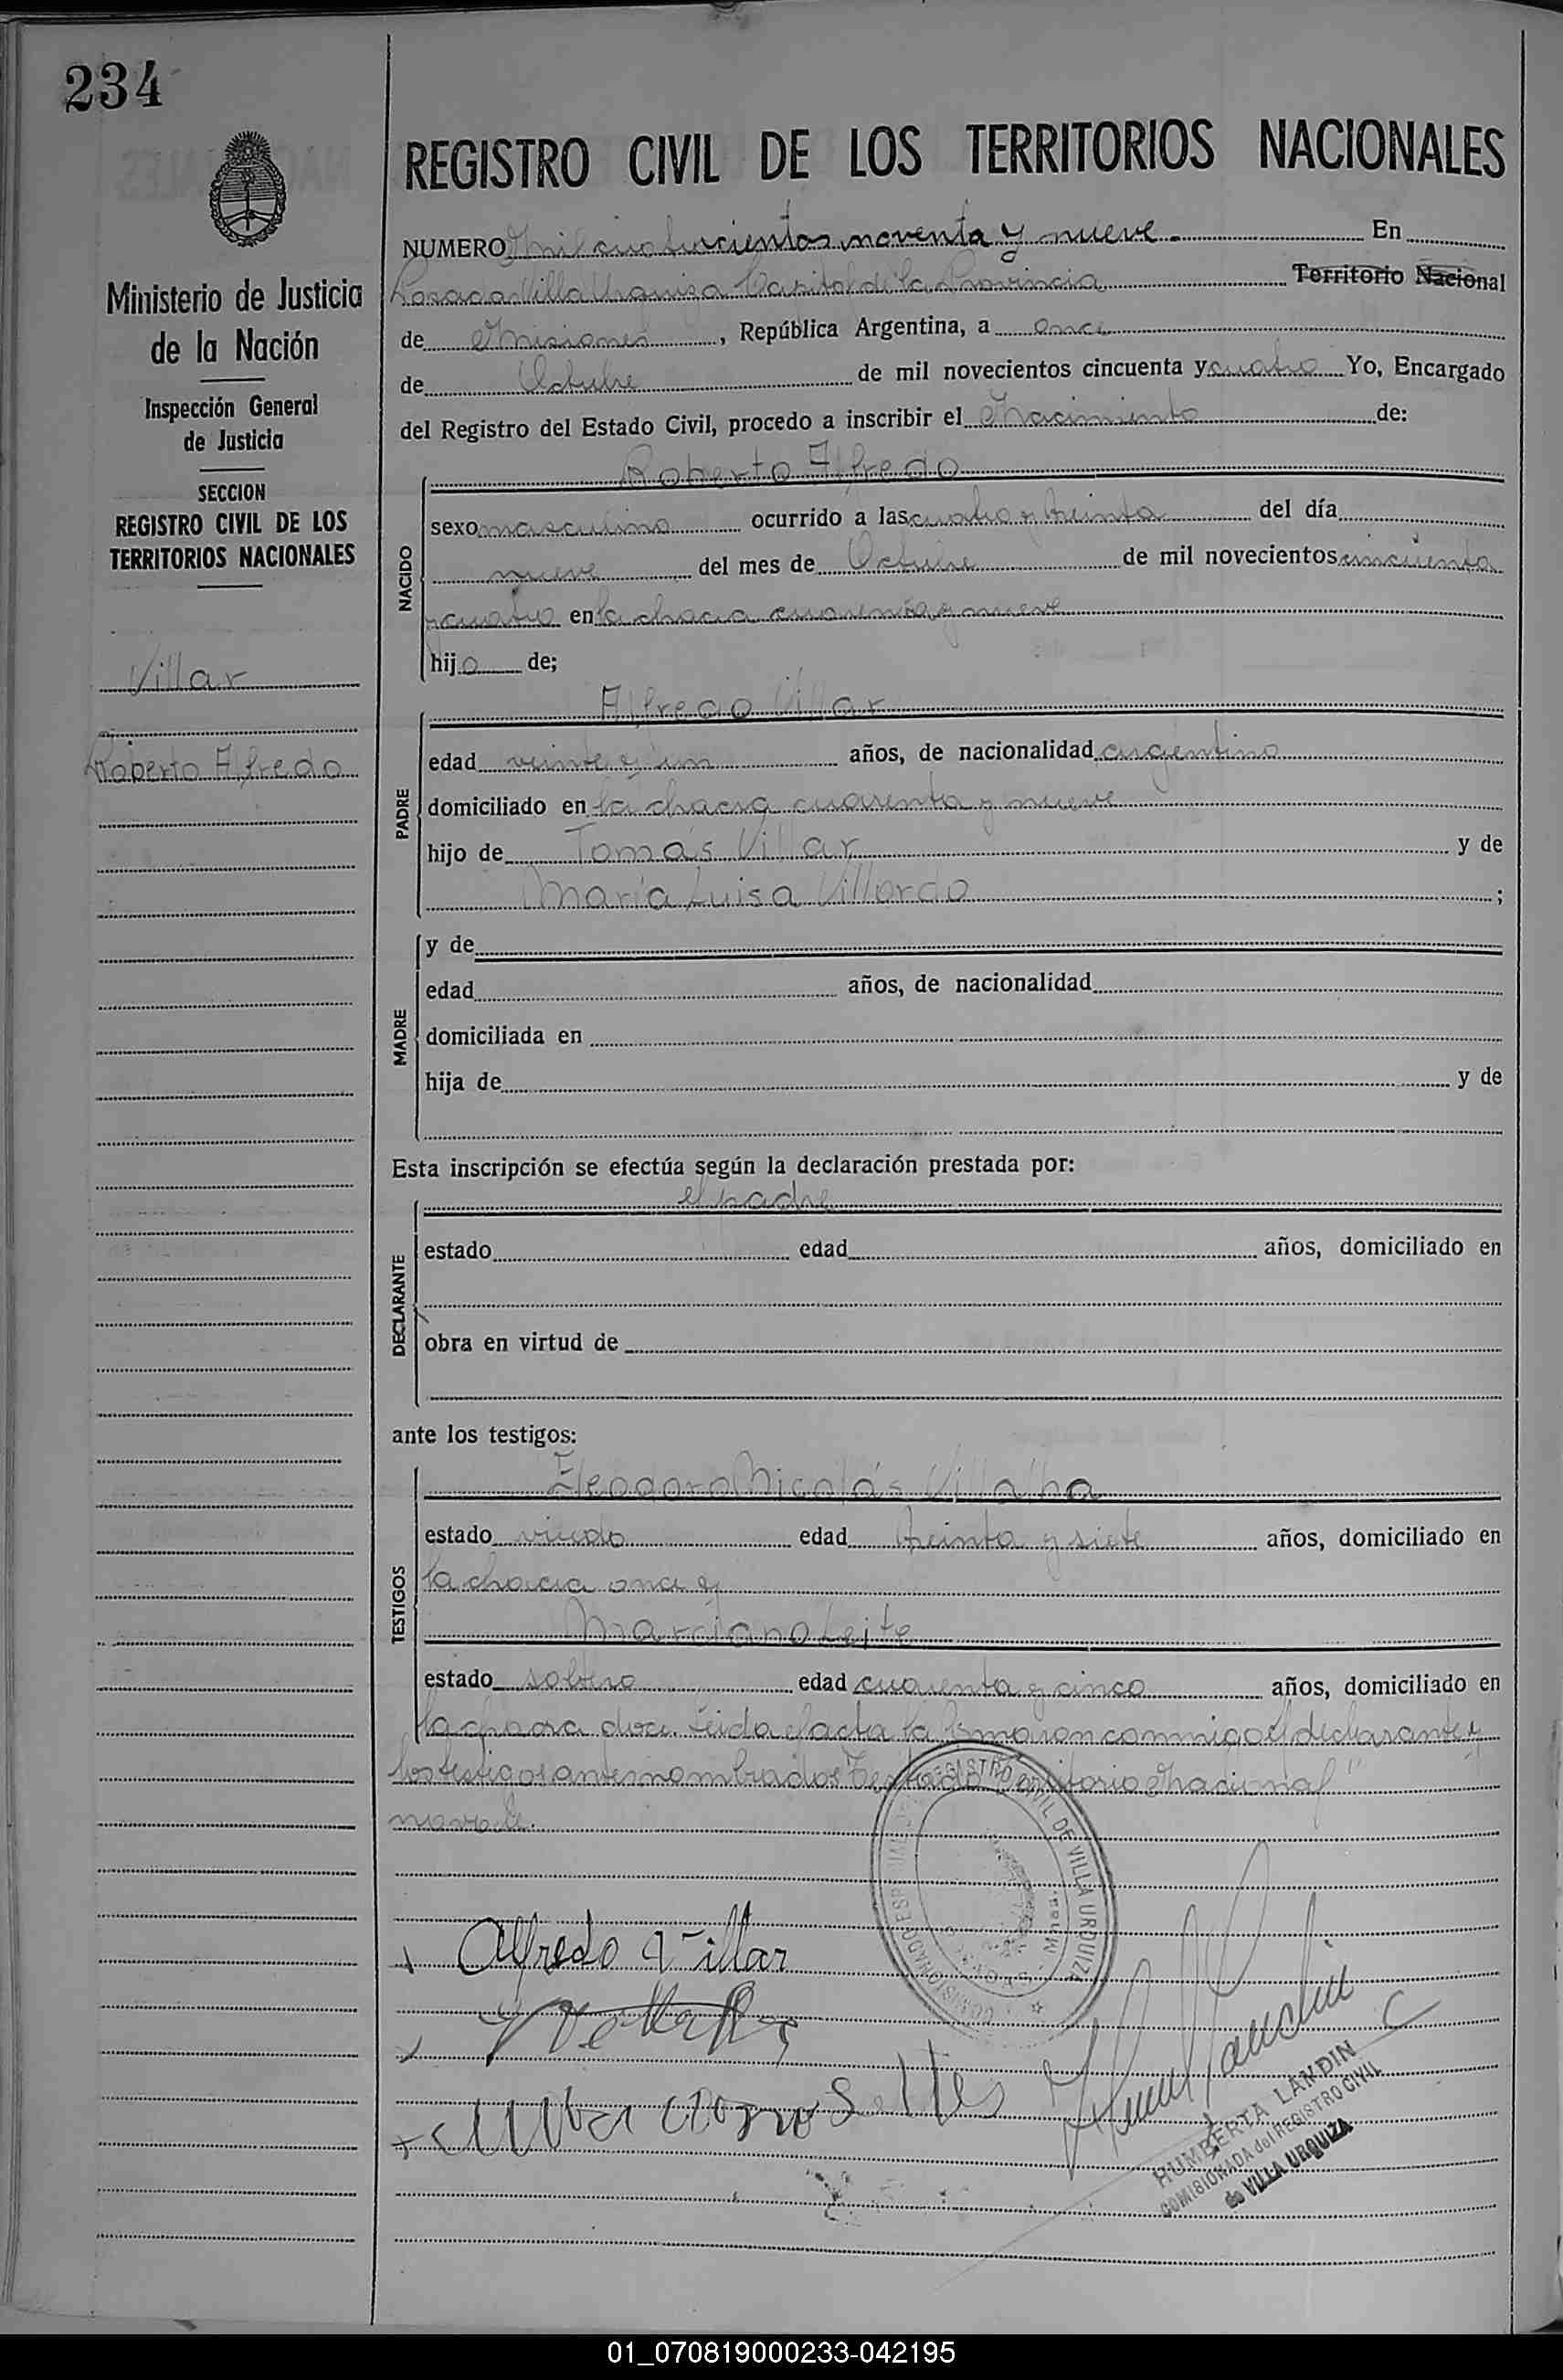 234
Ministerio de Justicia
de la Nación
Inspección General
de Justicia
SECCION
REGISTRO CIVIL DE LOS
TERRITORIOS NACIONALES
Villar
Roberto Alfredo
REGISTRO CIVIL DE LOS TERRITORIOS NACIONALES
NUMERO Mil cuatrocientos noventa y nueve.- En
Posadas Villa Urquiza Capital de la Provincia Territorio Nacional
de Misiones, República Argentina, a once
de Octubre de mil novecientos cincuenta y cuatro Yo, Encargado
del Registro del Estado Civil, procedo a inscribir el Nacimiento de:
Roberto Alfredo
NACIDO
sexo masculino ocurrido a las cuatro y treinta del día
nueve del mes de Octubre de mil novecientos cincuenta
y cuatro en la chacra cuarenta y nueve
hijo de;
PADRE
Alfredo Villar
edad veinte y un años, de nacionalidad argentino
domiciliado en la chacra cuarenta y nueve
hijo de Tomás Villar y de
María Luisa Villordo ;
MADRE
y de
edad años, de nacionalidad
domiciliada en
hija de y de
Esta inscripción se efectúa según la declaración prestada por:
el padre
DECLARANTE
estado edad años, domiciliado en
obra en virtud de
ante los testigos:
TESTIGOS
Eleodoro Nicolás Villalba
estado viudo edad treinta y siete años, domiciliado en
la chacra once y
Marciano Leite
estado soltero edad cuarenta y cinco años, domiciliado en
la chacra doce. Leida el acta la firmaron conmigo el declarante y
los testigos antes nombrados Testado "Territorio Nacional"
no vale.
REGISTRO CIVIL DE VILLA URQUIZA
Alfredo Villar
HUMBERTA LANDIN
COMISIONADA del REGISTRO CIVIL
de VILLA URQUIZA
01_070819000233-042195